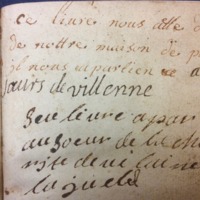 ce livre nous atte
de nottre maison de p
il nous apartien
sœurs de villenne
seu livre apar
au soeur de la cha
rite de ve laine
la juele